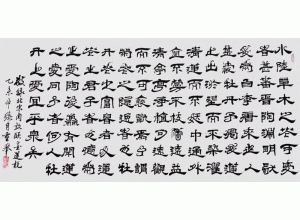 水陸草木之華可愛
者甚蕃晉陶淵明獨
愛菊自李唐來世人
盛愛牡丹予獨愛蓮
之出淤泥而不染濯
清漣而不妖中通外
直不蔓不枝香遠益
清亭亭淨植可遠觀
而不可褻玩焉予謂
菊華之隱逸者也牡
丹華之富貴者也蓮
華之君子者也噫菊
之愛陶後鮮有聞蓮
之愛同予者何人牡
丹之愛宜乎眾矣
北宋周敦頤愛蓮說
乙未年